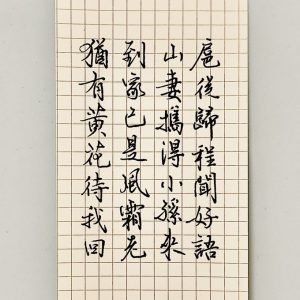 扈從歸程聞好語
山妻攜得小孫來
到家已是風霜光
猶有黃花待我回